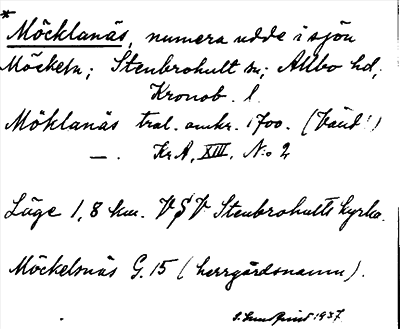 * Möcklanäs, numera udde i sjön
Möckeln; Stenbrohult sn; Allbo hd,
Kronob. l.
Möklanäs tral. omkr. 1700. (
—. KrA, XIII, N:o 2
Läge 1,8 km. VSV Stenbrohults kyrka.
Möckelsnäs G. 15 (herrgårdsnamn).
1937.